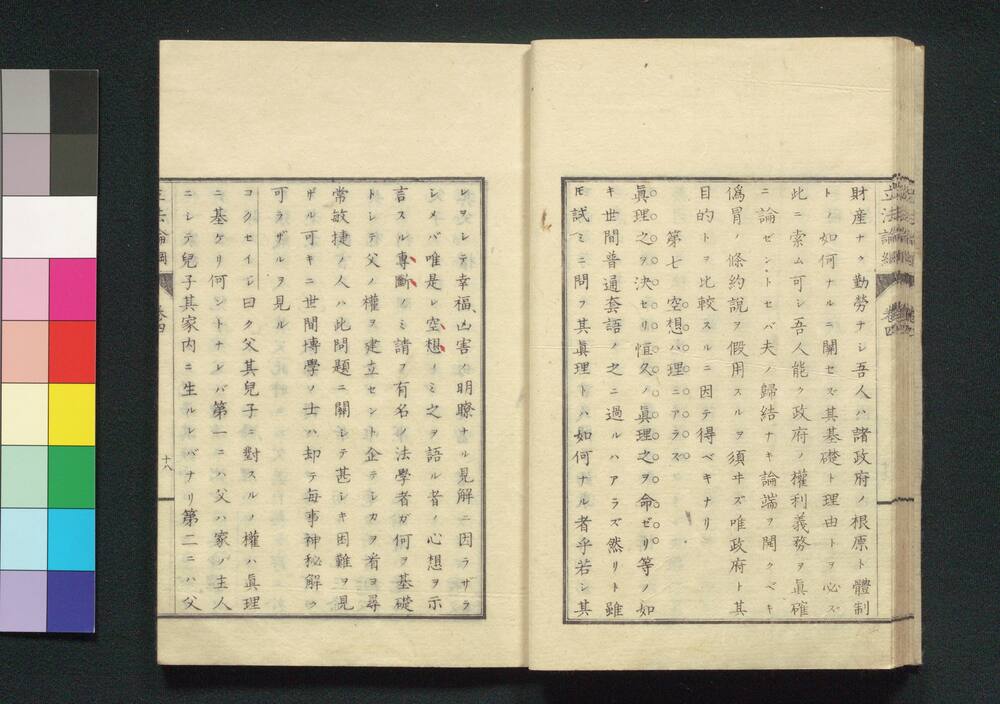 財産ナク勤勞ナシ吾人ハ諸政府ノ根原ト體制
トノ如何ナルニ關セズ其基礎ト理由トヲ必ズ
此ニ索ム可シ吾人能ク政府ノ權利義務ヲ眞確
ニ論ゼントセバ夫ノ歸結ナキ論端ヲ開クベキ
僞冒ノ條約説ヲ假用スルヲ須ヰズ唯政府ト其
目的トヲ比較スルニ因テ得ベキナリ
第七 空想ハ理ニアラズ
眞理之ヲ決セリ恒久ノ眞理之ヲ命ゼリ等ノ如
キ世間普通套語ノ之ニ過ルハアラズ然リト雖
モ試ミニ問フ其眞理トハ如何ナル者乎若シ其
レヲレテ幸福凶害ノ明瞭ナル見解ニ因ラザラ
シメバ唯是レ空想ノミ之ヲ語ル者ノ心想ヲ示
言スル專斷ノミ請フ有名ノ法學者ガ何ヲ基礎
トレテ父ノ權ヲ建立セント企テシカヲ看ヨ尋
常敏捷ノ人ハ此問題ニ關シテ甚シキ困難ヲ見
ザル可キニ世間博學ノ士ハ却テ毎事神秘解ク
可ラザルヲ見ル
コクセイレ曰ク父其兒子ニ對スルノ權ハ眞理
ニ基ケリ何ントナレバ第一ニハ父ハ家ノ主人
ニシテ兒子其家内ニ生ルレバナリ第二ニハ父
立法論綱
卷四
十八